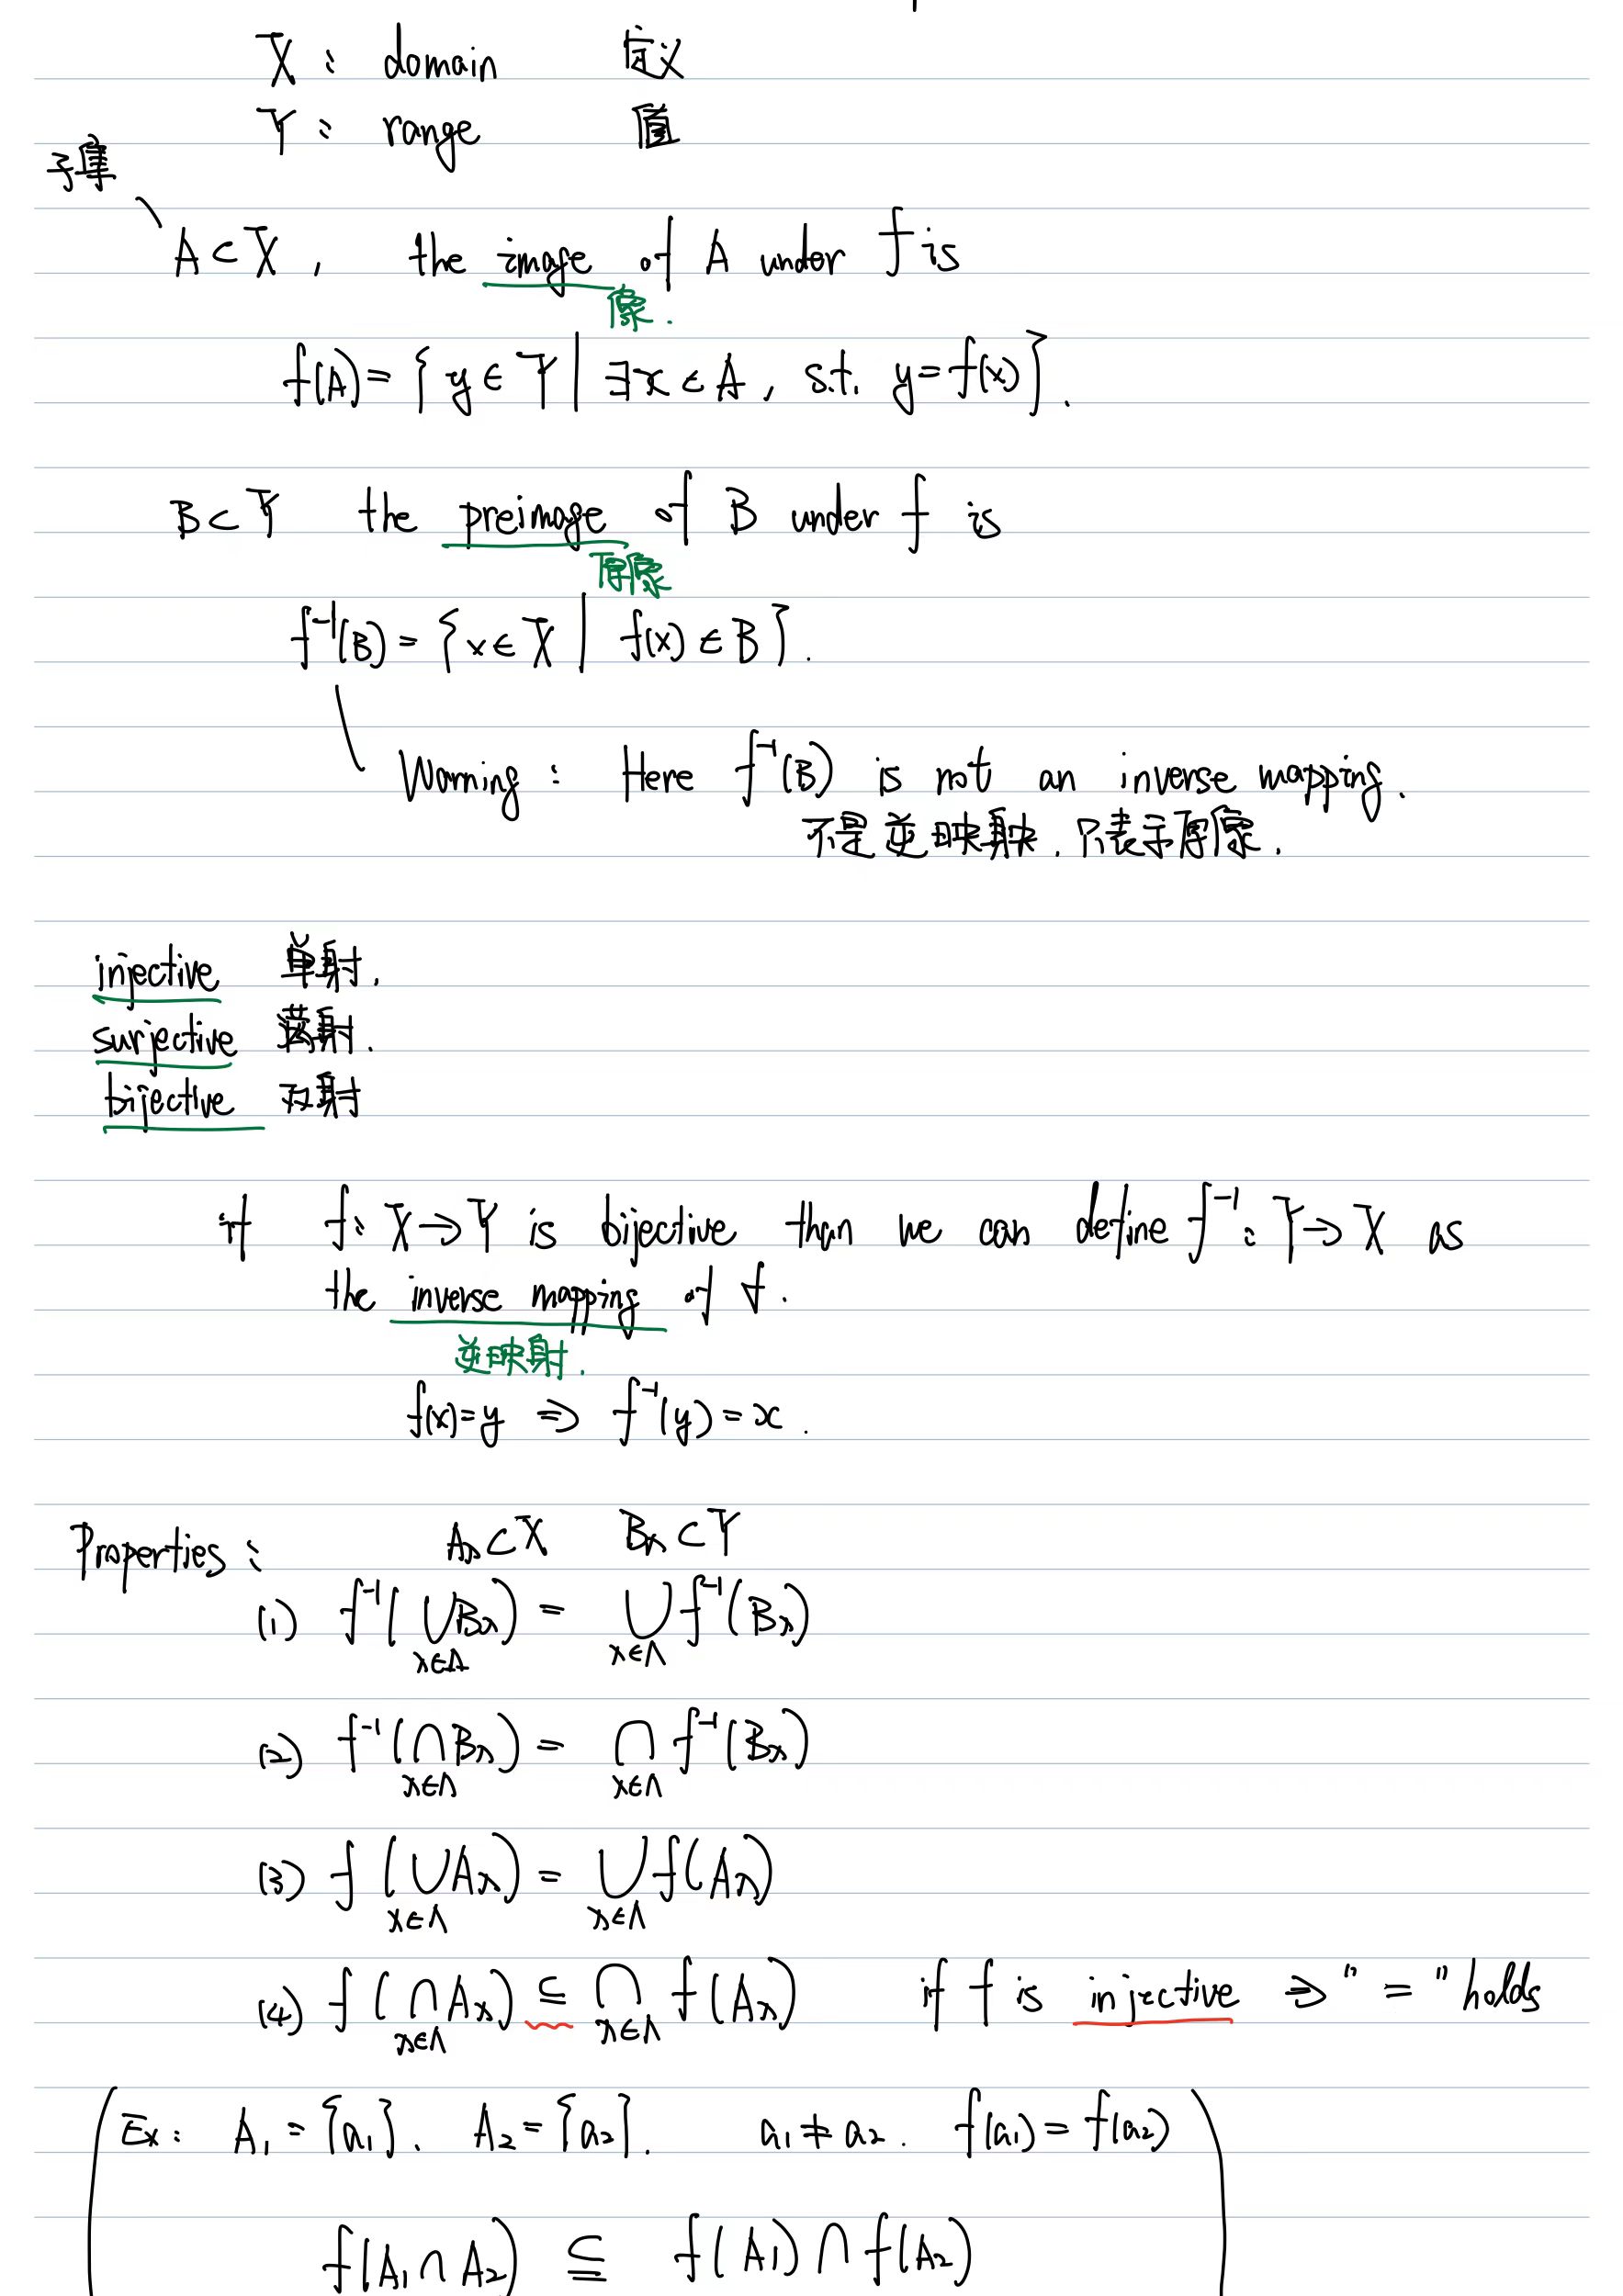 X : domain 定义
Y : range 值
子集
A⊂X, the image of A under f is
像.
f(A)={y∈Y|∃x∈A, s.t. y=f(x)}.
B⊂Y the preimage of B under f is
原像
f⁻¹(B)={x∈X| f(x)∈B}.
Warning : Here f⁻¹(B) is not an inverse mapping.
不是逆映射. 只表示原像.
injective 单射.
surjective 满射.
bijective 双射
if f: X→Y is bijective than we can define f⁻¹: Y→X as
the inverse mapping of f.
逆映射.
f(x)=y ⇒ f⁻¹(y)=x.
Properties : A_λ⊂X B_λ⊂Y
(1) f⁻¹(⋃_{λ∈Λ} B_λ) = ⋃_{λ∈Λ} f⁻¹(B_λ)
(2) f⁻¹(⋂_{λ∈Λ} B_λ) = ⋂_{λ∈Λ} f⁻¹(B_λ)
(3) f(⋃_{λ∈Λ} A_λ) = ⋃_{λ∈Λ} f(A_λ)
(4) f(⋂_{λ∈Λ} A_λ) ⊆ ⋂_{λ∈Λ} f(A_λ) if f is injective ⇒ "=" holds
Ex: A₁={a₁}. A₂={a₂}. a₁≠a₂. f(a₁)=f(a₂)
f(A₁∩A₂) ⊆ f(A₁)∩f(A₂)